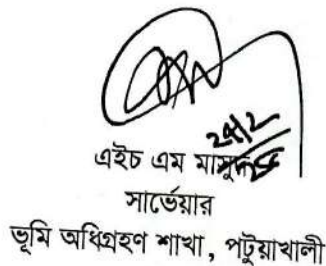 এইচ এম মাসুদ
সার্ভেয়ার
ভূমি অধিগ্রহণ শাখা, পটুয়াখালী